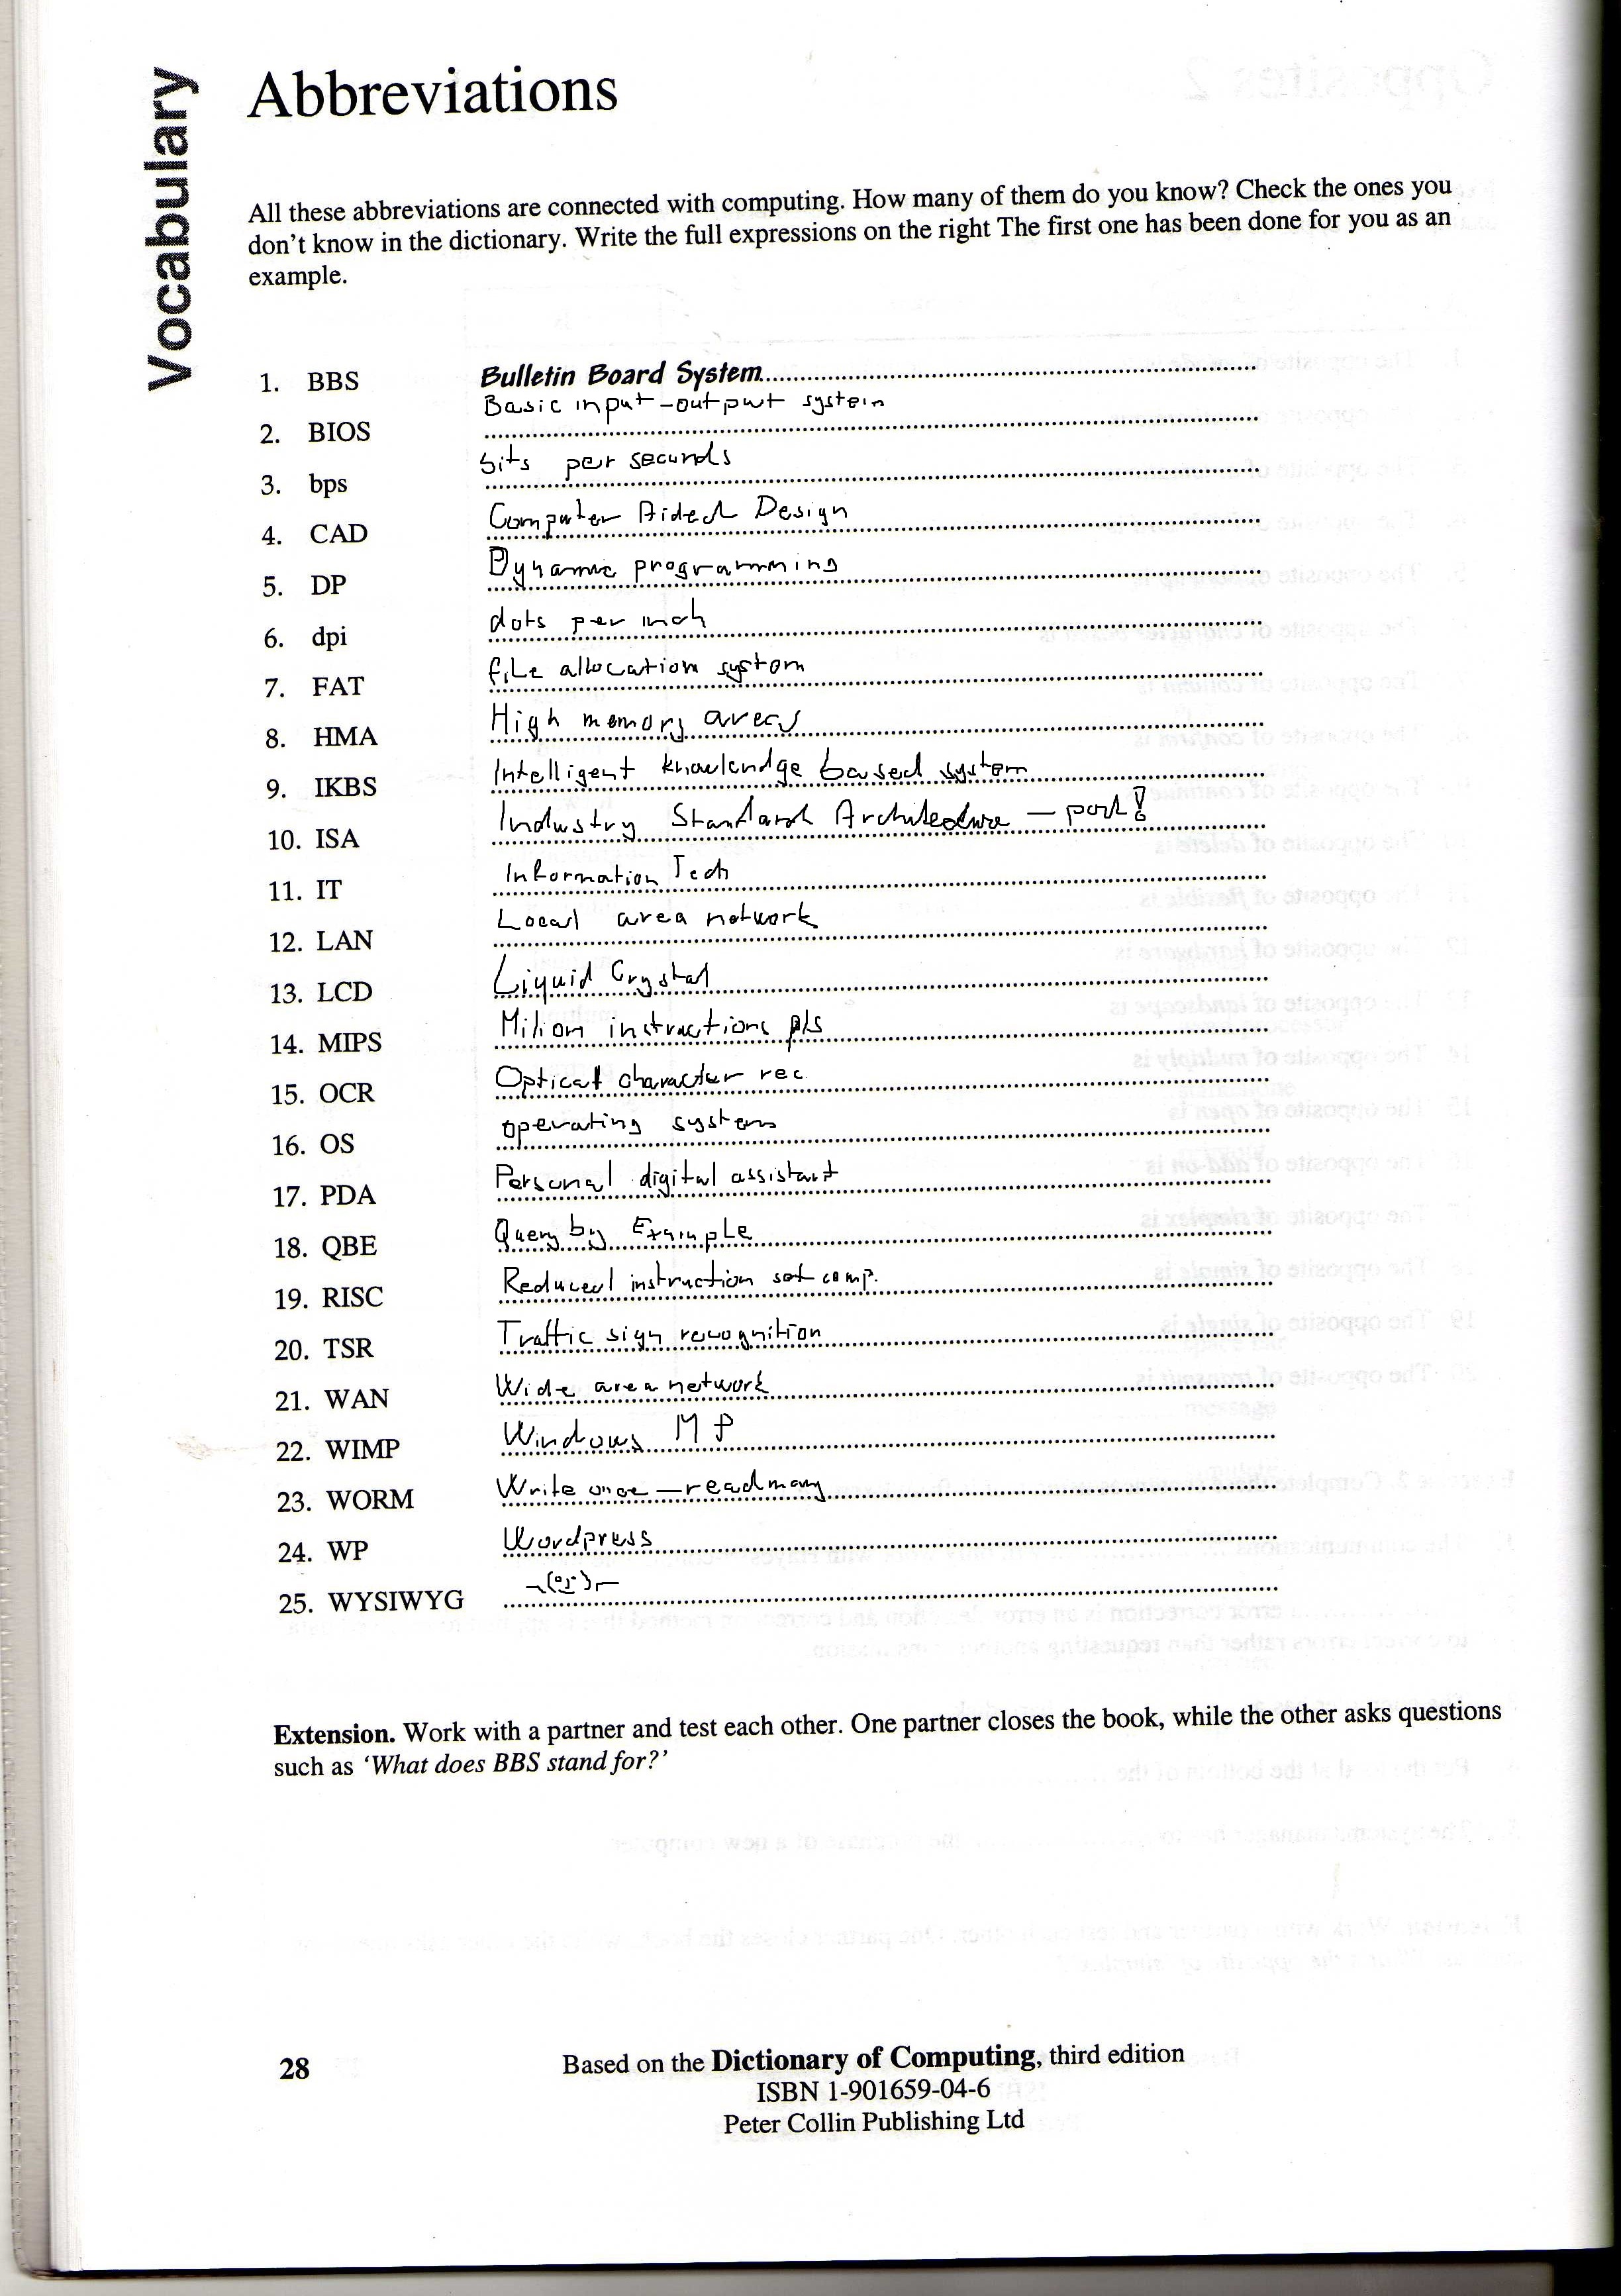 Vocabulary
Abbreviations
All these abbreviations are connected with computing. How many of them do you know? Check the ones you
don't know in the dictionary. Write the full expressions on the right The first one has been done for you as an
example.
1. BBS Bulletin Board System
2. BIOS Basic input-output system
3. bps bits per seconds
4. CAD Computer Aided Design
5. DP Dynamic programming
6. dpi dots per inch
7. FAT file allocation system
8. HMA High memory area
9. IKBS Intelligent knowlendge based system
10. ISA Industry Standard Architecture - port!
11. IT Information Tech
12. LAN Local area network
13. LCD Liquid Crystal
14. MIPS Milion instructions p/s
15. OCR Optical character rec.
16. OS operating system
17. PDA Personal digital assistant
18. QBE Query by Example
19. RISC Reduced instruction set comp.
20. TSR Traffic sign recognition
21. WAN Wide area network
22. WIMP Windows M P
23. WORM Write once - read many
24. WP Wordpress
25. WYSIWYG
Extension. Work with a partner and test each other. One partner closes the book, while the other asks questions
such as 'What does BBS stand for?'
28
Based on the Dictionary of Computing, third edition
ISBN 1-901659-04-6
Peter Collin Publishing Ltd